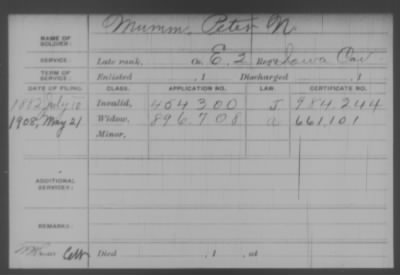 NAME OF SOLDIER: Mumm, Peter N
SERVICE: Late rank, Co. E, 2 Reg't Iowa Cav
TERM OF SERVICE: Enlisted , 1 Discharged , 1
DATE OF FILING. CLASS. APPLICATION NO. LAW. CERTIFICATE NO.
1882 July 10 Invalid, 454300 J 984244
1908, May 21 Widow, 896.708 a 661,101
Minor,
ADDITIONAL SERVICES:
REMARKS:
Died , 1 , at